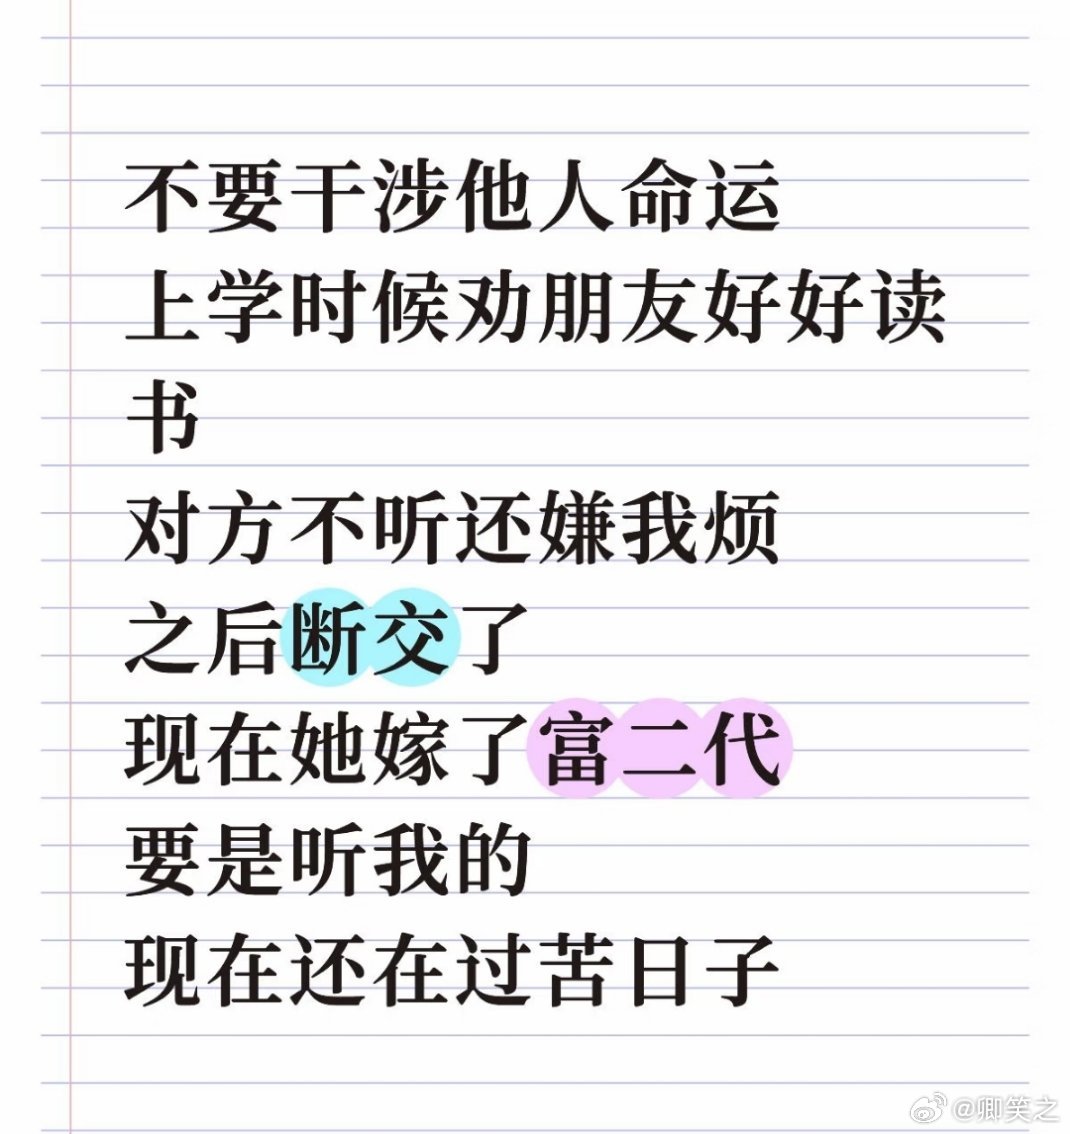 不要干涉他人命运
上学时候劝朋友好好读
书
对方不听还嫌我烦
之后断交了
现在她嫁了富二代
要是听我的
现在还在过苦日子
@卿笑之